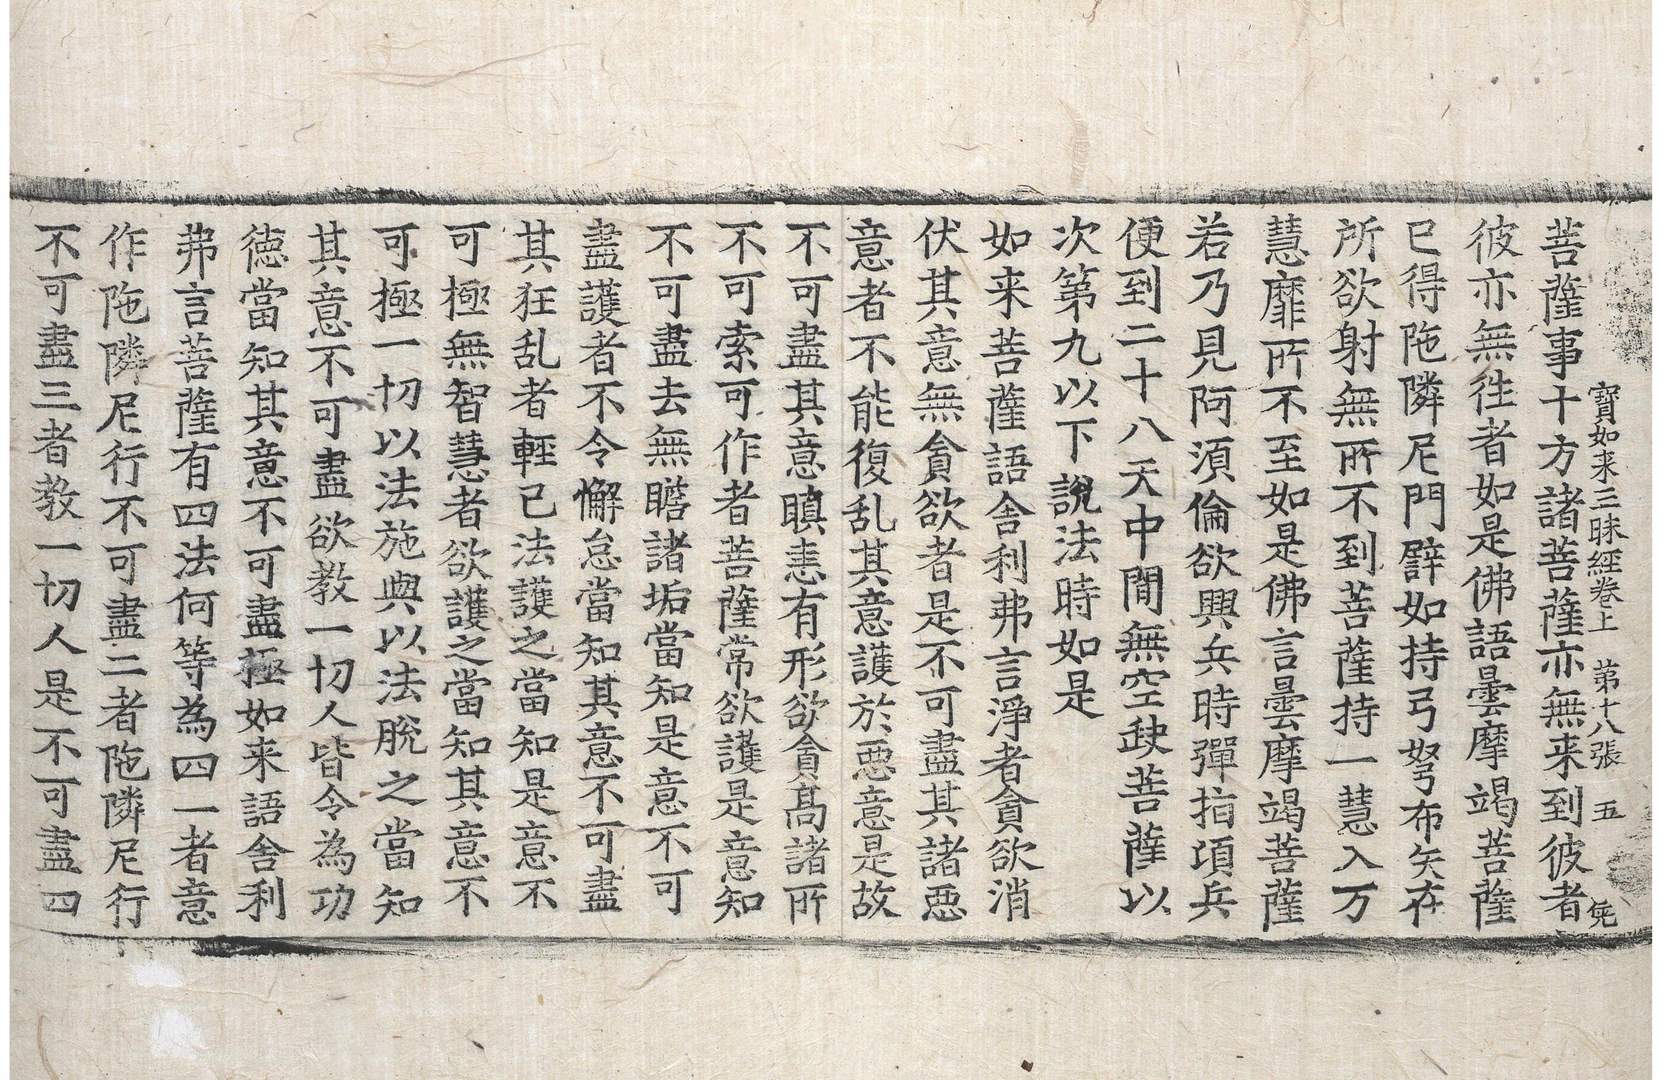 寶如来三昧經卷上 苐十八張 五 㒵
菩薩事十方諸菩薩亦無来到彼者
彼亦無徃者如是佛語曇摩竭菩薩
已得陁隣尼門譬如持弓弩布矢在
所欲射無所不到菩薩持一慧入万
慧靡所不至如是佛言曇摩竭菩薩
若乃見阿湏倫欲興兵時彈指項兵
便到二十八天中間無空缺菩薩以
次第九以下說法時如是
如来菩薩語舎利弗言淨者貪欲消
伏其意無貪欲者是不可盡其諸惡
意者不能復乱其意護於惡意是故
不可盡其意瞋恚有形欲貪髙諸所
不可索可作者菩薩常欲護是意知
不可盡去無瞻諸垢當知是意不可
盡護者不令懈怠當知其意不可盡
其狂乱者輕已法護之當知是意不
可極無智慧者欲護之當知其意不
可極一切以法施與以法脫之當知
其意不可盡欲教一切人皆令為功
徳當知其意不可盡極如来語舎利
弗言菩薩有四法何等為四一者意
作陁隣尼行不可盡二者陁隣尼行
不可盡三者教一切人是不可盡四